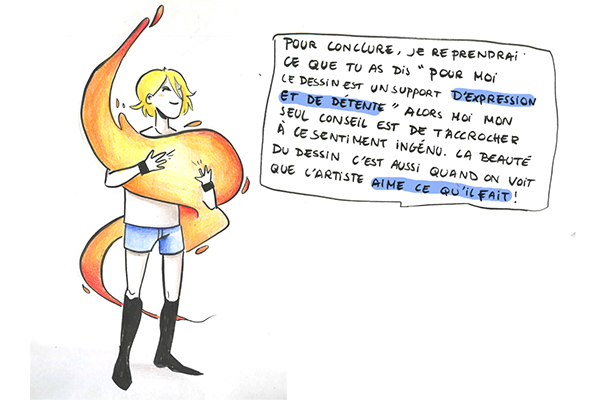 POUR CONCLURE, JE REPRENDRAI
CE QUE TU AS DIS "POUR MOI
LE DESSIN EST UN SUPPORT D'EXPRESSION
ET DE DÉTENTE" ALORS MOI MON
SEUL CONSEIL EST DE T'ACCROCHER
À CE SENTIMENT INGÉNU. LA BEAUTÉ
DU DESSIN C'EST AUSSI QUAND ON VOIT
QUE L'ARTISTE AIME CE QU'IL FAIT!